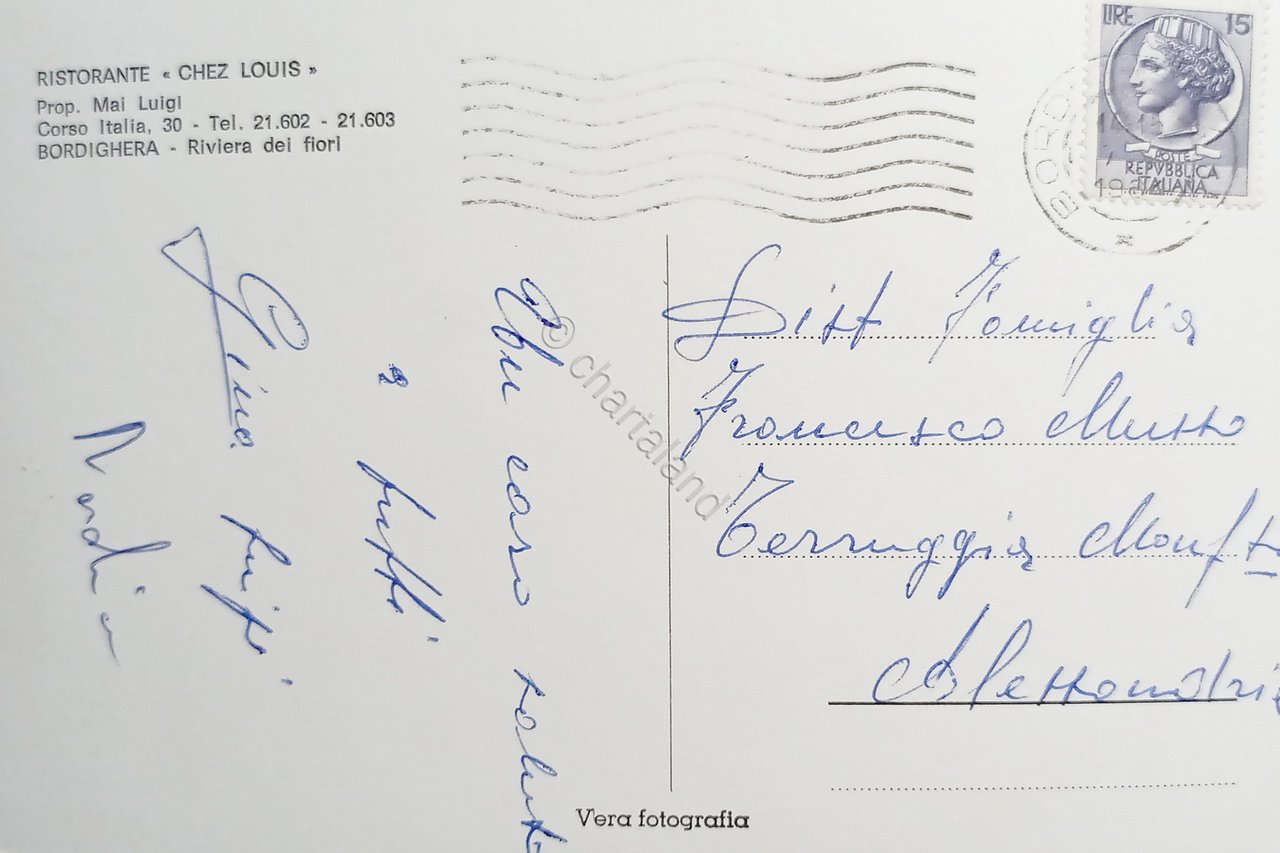 RISTORANTE « CHEZ LOUIS »
Prop. Mai Luigi
Corso Italia, 30 - Tel. 21.602 - 21.603
BORDIGHERA - Riviera dei fiori
LIRE 15
POSTE
REPVBBLICA
ITALIANA
BORD
Dist Famiglia
Francesco Musso
Terruggia Monft
Alessandria
Un caro saluto
a tutti
Gina Luigi
Nadia
© chartaland
Vera fotografia